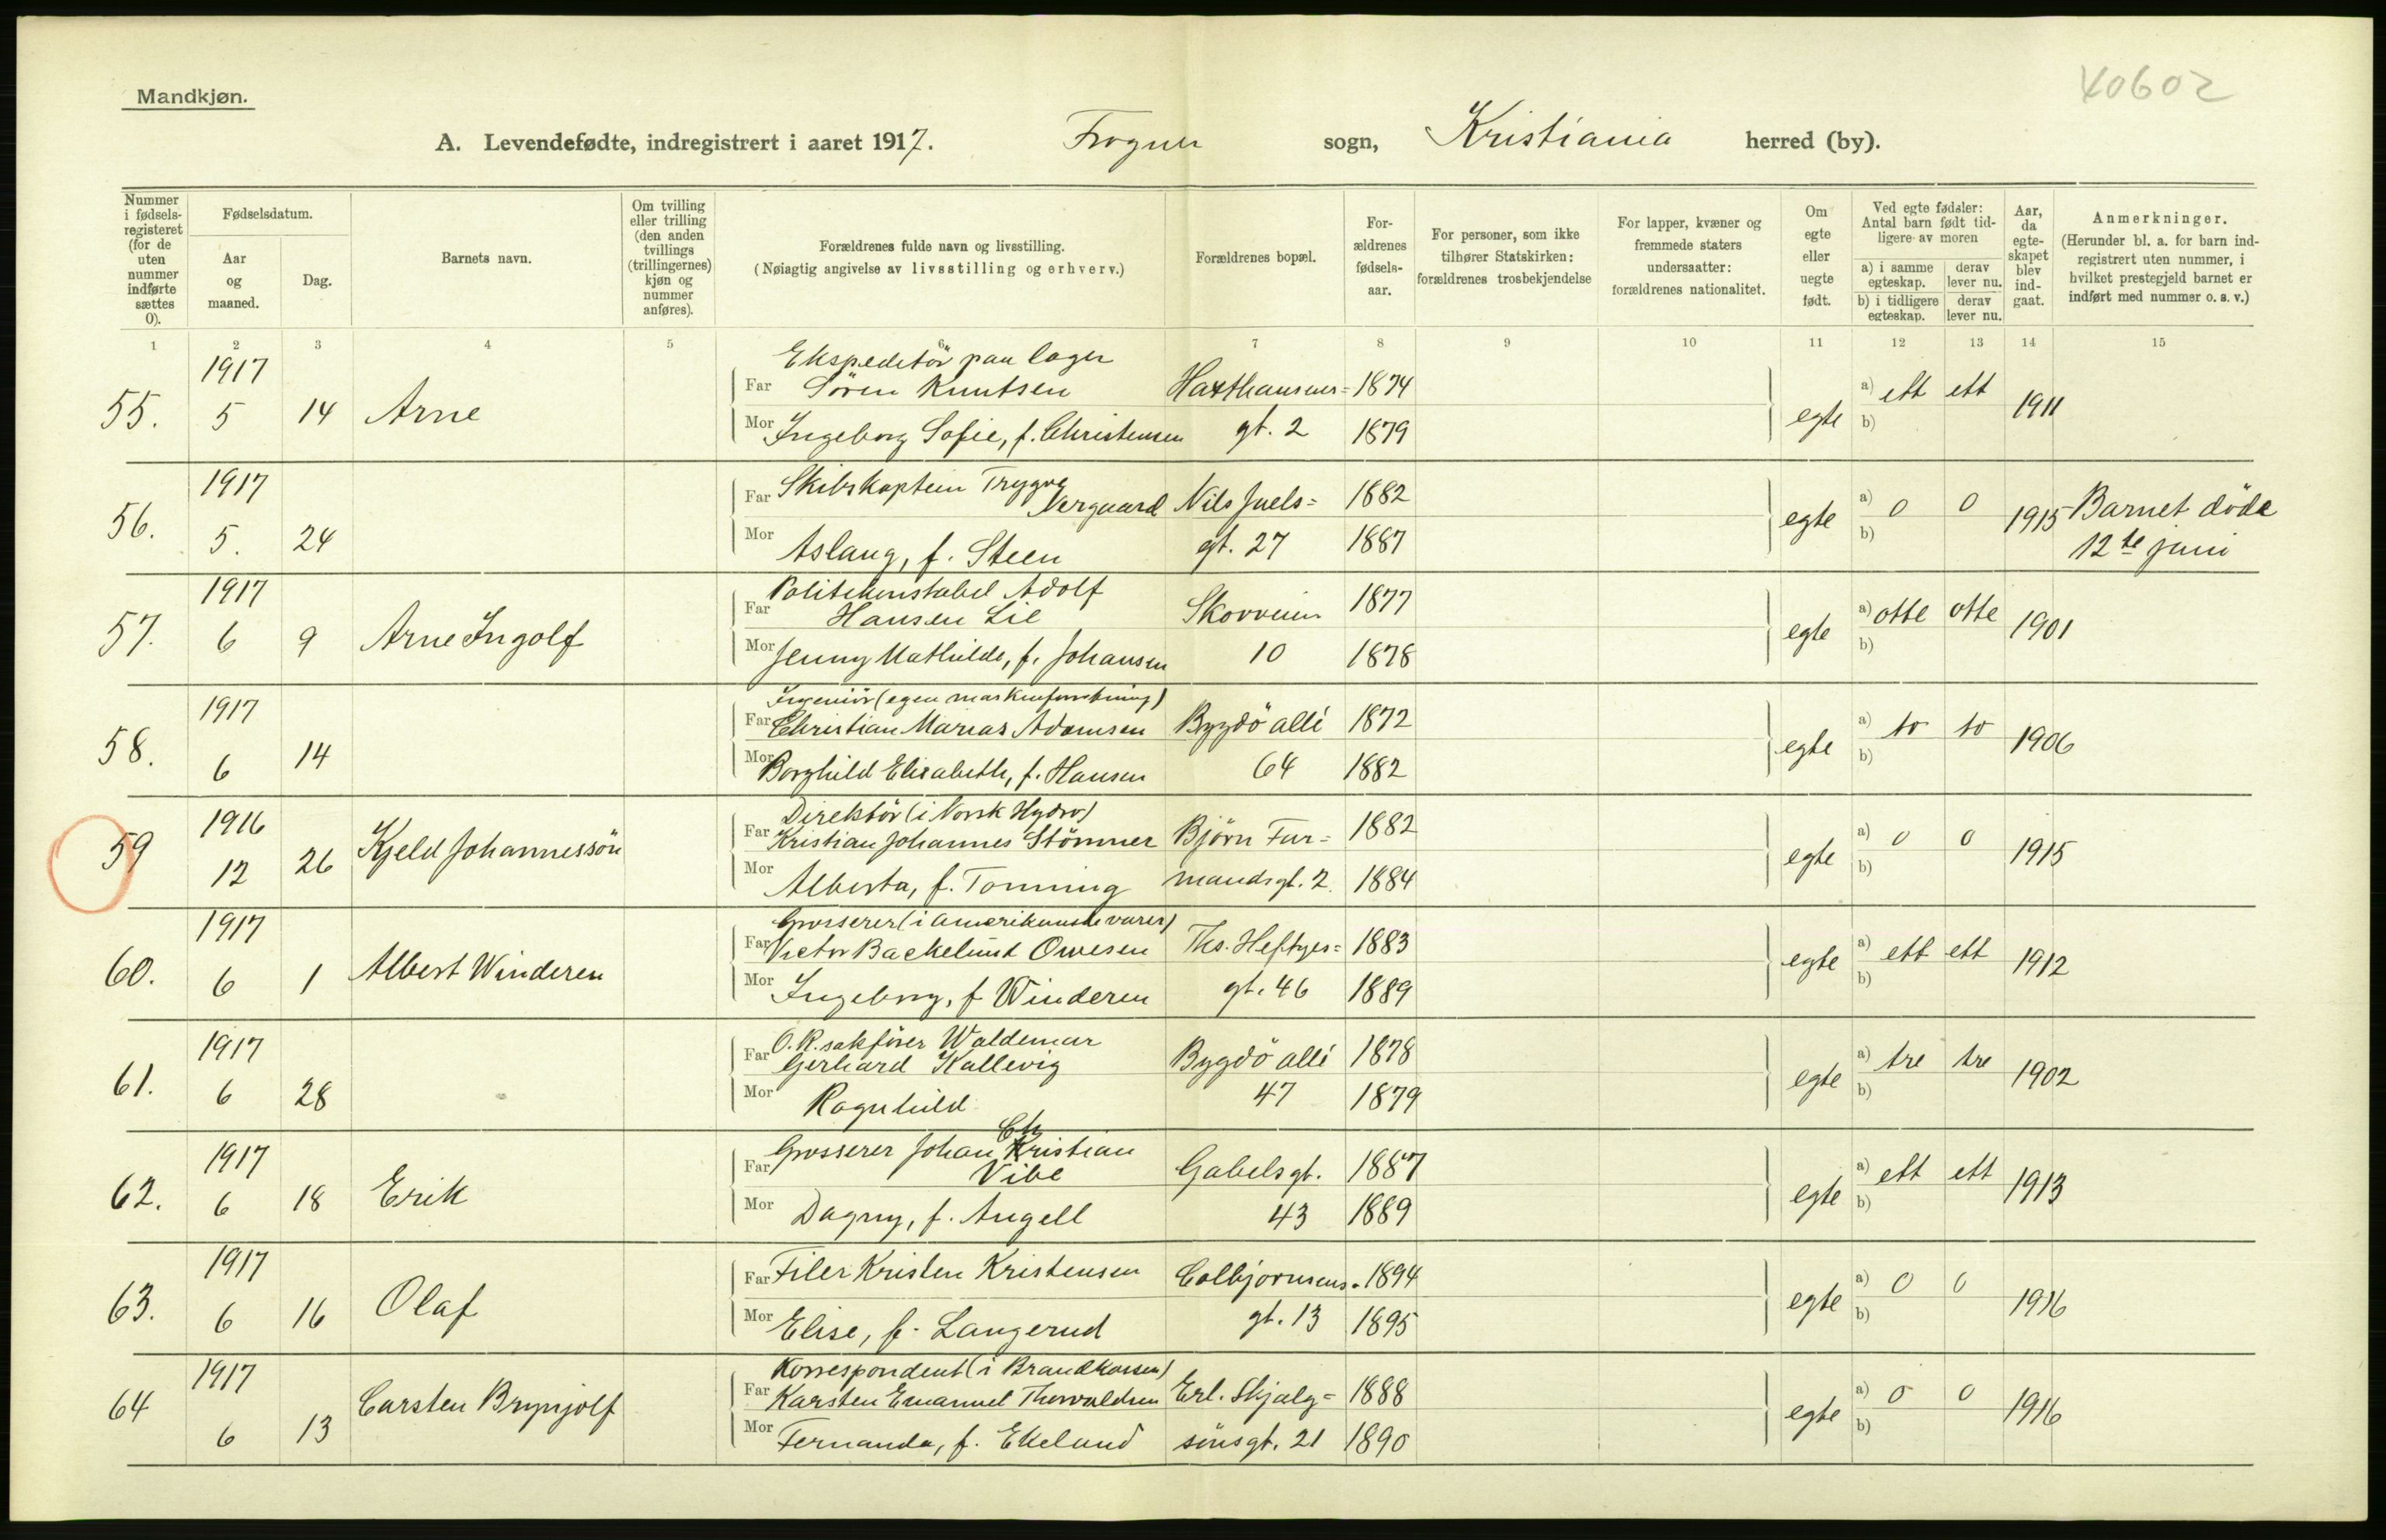 Mandkjøn.
40602
A. Levendefødte, indregistrert i aaret 1917. Frogner sogn, Kristiania herred (by).
Nummer i fødsels-registeret (for de uten nummer indførte sættes 0).
Fødselsdatum.
Aar og maaned.
Dag.
Barnets navn.
Om tvilling eller trilling (den anden tvillings (trillingernes) kjøn og nummer anføres).
Forældrenes fulde navn og livsstilling.
(Nøiagtig angivelse av livsstilling og erhverv.)
Forældrenes bopæl.
For-ældrenes fødsels-aar.
For personer, som ikke tilhører Statskirken: forældrenes trosbekjendelse
For lapper, kvæner og fremmede staters undersaatter: forældrenes nationalitet.
Om egte eller uegte født.
Ved egte fødsler: Antal barn født tid-ligere av moren
a) i samme egteskap.
derav lever nu.
b) i tidligere egteskap.
derav lever nu.
Aar, da egte-skapet blev ind-gaat.
Anmerkninger.
(Herunder bl. a. for barn ind-registrert uten nummer, i hvilket prestegjeld barnet er indført med nummer o. s. v.)
1 2 3 4 5 6 7 8 9 10 11 12 13 14 15
1917 Ekspeditör paa lager
Far Sören Knutsen Harthausens= 1874 a) ett ett
55. 5 14 Arne egte b) 1911
Mor Ingeborg Sofie, f. Christensen gt. 2 1879
1917 Far Skibskaptein Trygve
Nergaard Nils Juels= 1882 a) 0 0
56. 5. 24 egte b) 1915 Barnet döde
Mor Aslaug, f. Steen gt. 27 1887 12te juni
1917 Politikonstabel Adolf
Far Hansen Lie Skovveien 1877 a) otte otte
57. 6 9 Arne Ingolf egte b) 1901
Mor Jenny Mathilde, f. Johansen 10 1878
1917 Ingeniör (egen maskinforretning)
Far Christian Marias Adamsen Bygdö allé 1872 a) to to
58. 6 14 egte b) 1906
Mor Borghild Elisabeth, f. Hansen 64 1882
1916 Direktör (i Norsk Hydro)
Far Kristian Johannes Stömner Björn Far= 1882 a) 0 0
59 12 26 Kjeld Johannessön egte b) 1915
Mor Alberta, f. Tonning mandsgt. 2. 1884
1917 Grosserer (i amerikanske varer)
Far Victor Backelund Owesen Ths. Heftyes= 1883 a) ett ett
60. 6 1 Albert Winderen egte b) 1912
Mor Ingeborg, f Winderen gt. 46 1889
1917 O.R.sakförer Waldemar
Far Gerhard Kallevig Bygdö allé 1878 a) tre tre
61. 6 28 egte b) 1902
Mor Ragnhild 47 1879
Ch
1917 Grosserer Johan Kristian
Far Vibe Gabelsgt. 1887 a) ett ett
62. 6 18 Erik egte b) 1913
Mor Dagny, f. Angell 43 1889
1917 Far Filer Kristen Kristensen Colbjörnsens= 1894 a) 0 0
63. 6 16 Olaf egte b) 1916
Mor Elise, f. Langerud gt. 13 1895
1917 Korrespondent (i Brandkassen)
Far Karsten Emanuel Thorvaldsen Erl. Skjalg= 1888 a) 0 0
64 6 13 Carsten Brynjolf egte b) 1916
Mor Fernanda, f. Ekelund sönsgt. 21 1890